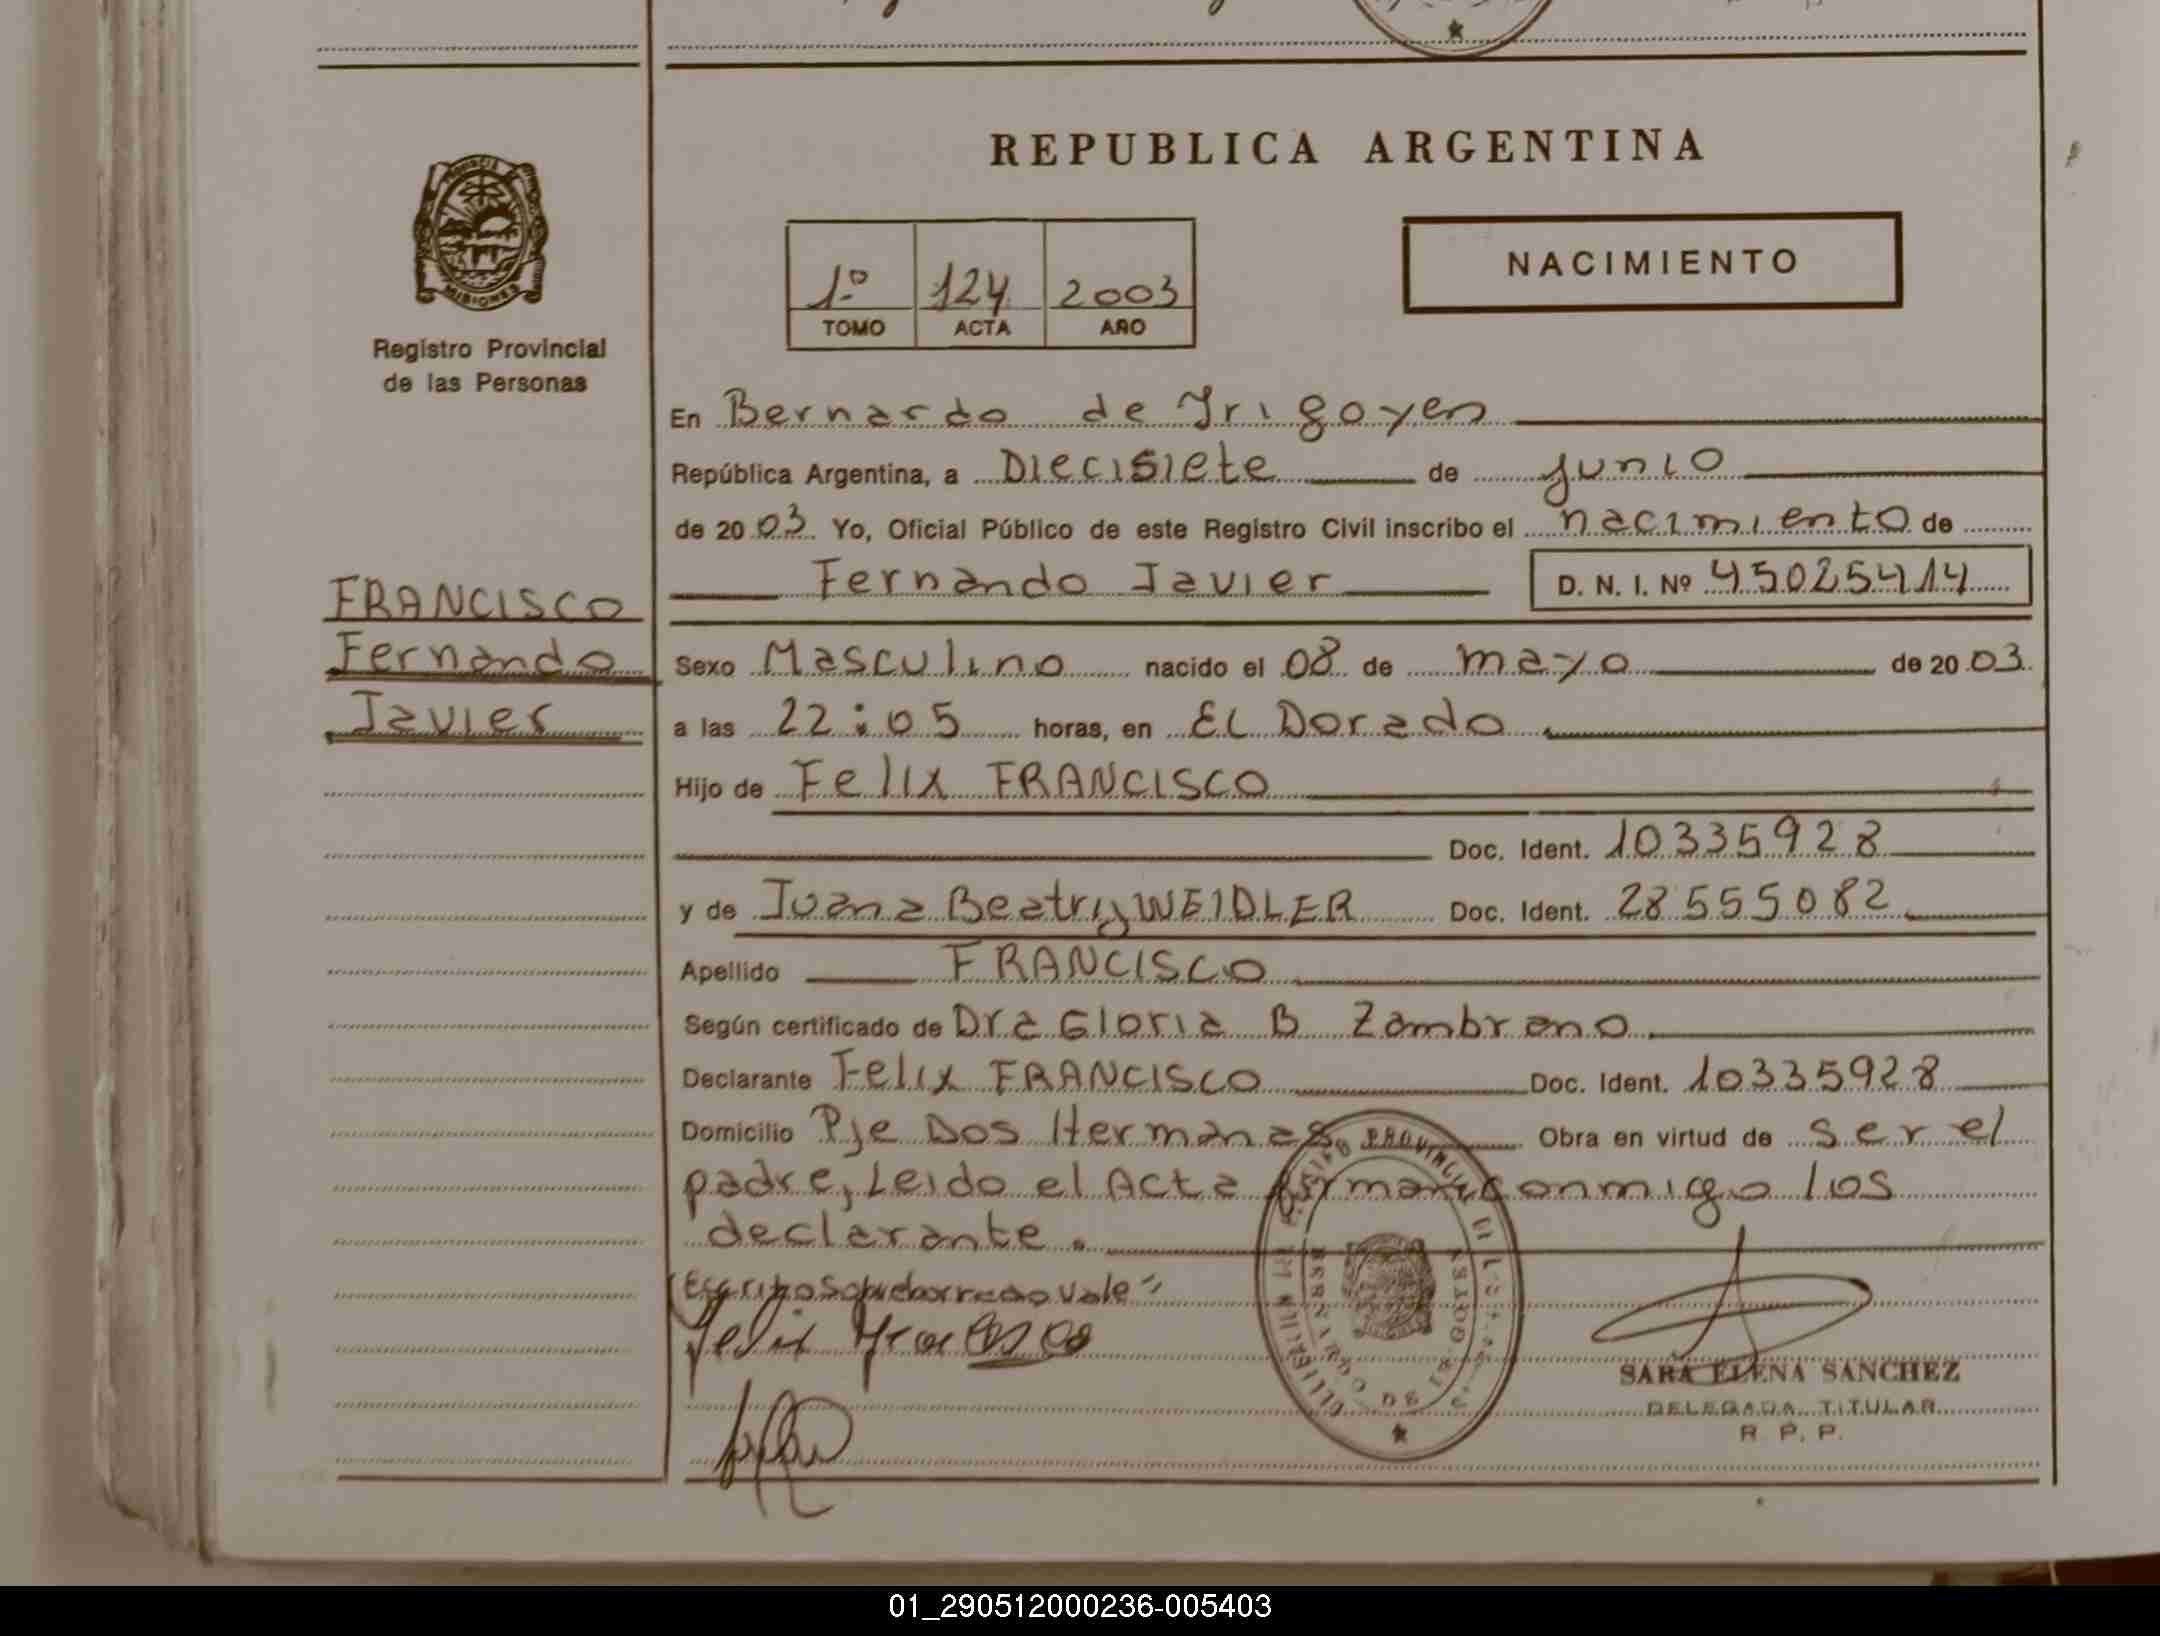 REPUBLICA ARGENTINA
PROVINCIA
MISIONES
Registro Provincial
de las Personas
1º 124 2003
TOMO ACTA AÑO
NACIMIENTO
En Bernardo de Yrigoyen
República Argentina, a Diecisiete de junio
de 2003. Yo, Oficial Público de este Registro Civil inscribo el nacimiento de
Fernando Javier D. N. I. Nº 45025414
FRANCISCO
Fernando
Javier
Sexo Masculino nacido el 08 de mayo de 2003.
a las 22:05 horas, en El Dorado
Hijo de Felix FRANCISCO
Doc. Ident. 10335928
y de Juana Beatriz WEIDLER Doc. Ident. 28555082
Apellido FRANCISCO
Según certificado de Dra Gloria B Zambrano
Declarante Felix FRANCISCO Doc. Ident. 10335928
Domicilio Pje Dos Hermanas Obra en virtud de ser el
padre, Leido el Acta conmigo los
declarante.
Felix
SARA ELENA SANCHEZ
DELEGADA TITULAR
R. P. P.
01_290512000236-005403